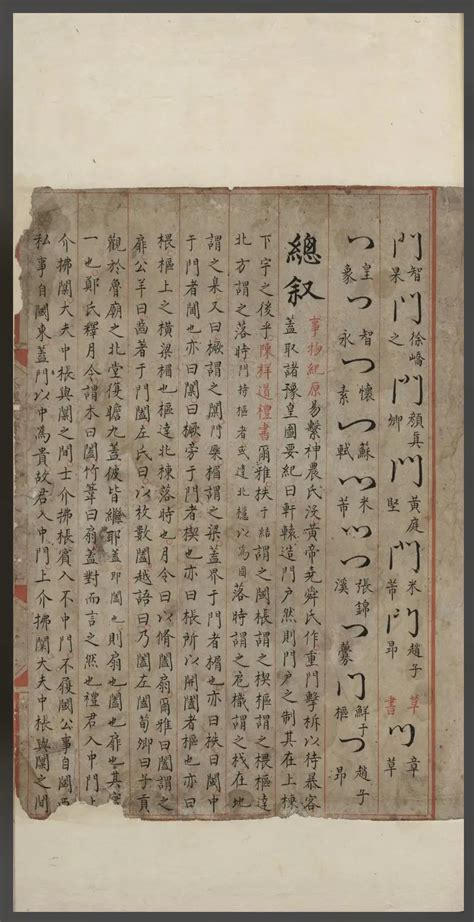 門智果門徐嶠之門顏真卿門黃庭堅門米芾門趙子昂草書門章草
門皇象門智永門懷素門蘇軾門米芾門張錦溪門門鮮于樞門趙子昂
總叙 事物紀原易繫神農氏沒黃帝堯舜氏作重門擊柝以待暴客
蓋取諸豫皇圖要紀曰軒轅造門户然則門户之制其在上棟
下宇之後乎陳祥道禮書爾雅柣于結謂之閾棖謂之楔樞謂之椳樞達
北方謂之落時門持樞者或達北檼以為固落時謂之戹樴謂之杙在地
謂之臬又曰橛謂之闑門楣謂之梁蓋界于門者楣也亦曰柣曰閾中
于門者闑也亦曰橛旁于門者楔也亦曰棖所以開闔者樞也亦曰
椳樞上之橫梁楣也樞達北棟落時也月令曰以脩闔扇爾雅曰闔謂之
扉公羊曰齒著于門闔左氏曰以枚數闔越語曰乃闔左闔荀卿曰子貢
觀於魯廟之北堂復瞻九蓋彼皆繼耶蓋即闔也則扇也闔也扉也其實
一也鄭氏釋月令謂木曰闔竹葦曰扇蓋對而言之然也禮君入中門上
介拂闑大夫中棖與闑之間士介拂棖賓入不中門不履閾公事自闑西
私事自闑東蓋門以中為貴故君入中門上介拂闑大夫中棖與闑之間